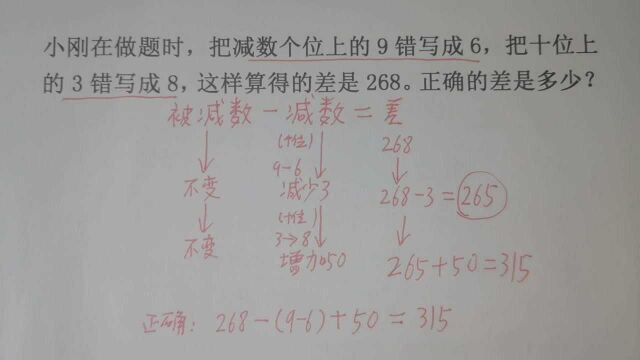 小刚在做题时，把减数个位上的 9 错写成 6，把十位上
的 3 错写成 8，这样算得的差是 268。正确的差是多少？
被减数 － 减数 ＝ 差
(个位) 268
9-6
不变 减少3 268-3=265
(十位)
3→8
不变 增加50 265+50=315
正确：268-(9-6)+50=315